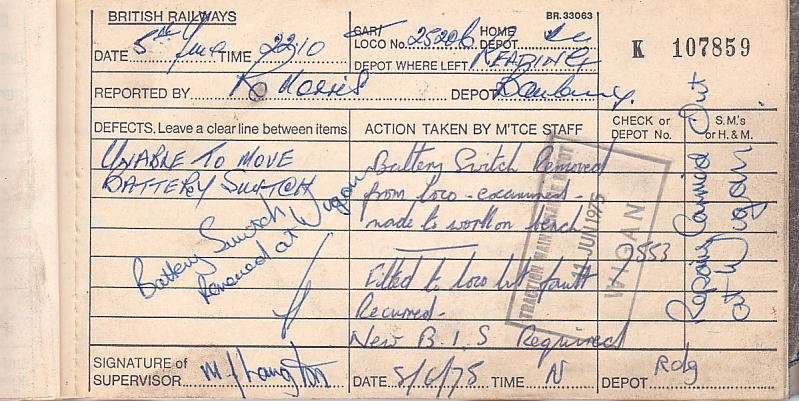 BRITISH RAILWAYS
BR.33063
DATE 5th June TIME 2210
CAR/ LOCO No. 25206 HOME DEPOT
K 107859
DEPOT WHERE LEFT READING
REPORTED BY R Morris DEPOT Banbury.
DEFECTS. Leave a clear line between items
ACTION TAKEN BY M'TCE STAFF
CHECK or DEPOT No.
S.M's or H. & M.
UNABLE TO MOVE
BATTERY SWITCH
Battery Switch
Renewed at Wigan
Battery Switch Removed
from loco - examined -
made to work on bench
Fitted to loco but fault
Recurred -
New B.I.S Required
TRACTION MAINTENANCE DEPOT
11 JUN 1975
WIGAN
0553
Repairs Carried Out
at Wigan
SIGNATURE of SUPERVISOR
DATE 5/6/75 TIME N DEPOT Rdg